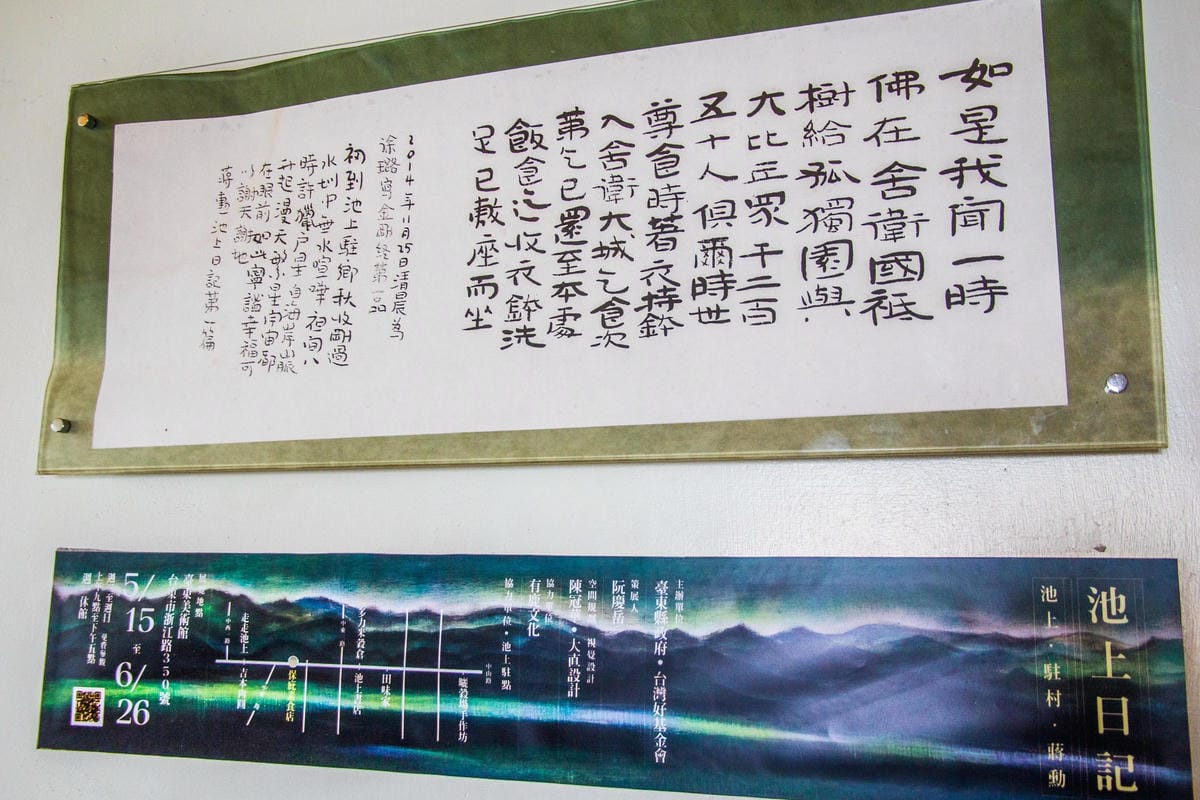 如是我聞一時
佛在舍衛國祗
樹給孤獨園與
大比丘眾千二百
五十人俱爾時世
尊食時著衣持鉢
入舍衛大城乞食次
第乞已還至本處
飯食迄收衣鉢洗
足已敷座而坐
2014年11月25日清晨為
徐璐寫金剛經第一品
初到池上駐鄉秋收剛過
水圳中無水喧嘩夜间八
時許獵户星自海岸山脈
升起漫天繁星宇宙都
在眼前如此寧謐幸福可
以謝天謝地
蔣勳池上日記第一篇
池上日記
池上·駐村·蔣勳
主辦單位
臺東縣政府•台灣好基金會
策展人
阮慶岳
空間規劃·視覺設計
陳冠華•大直設計
協力單位
有鹿文化
協力單位•池上駐點
中山路
曬穀場手作坊
田味家
多力米穀倉
池上書店
中東路
保庇素食店
走走池上
吉本肉圓
中西路
展覽地點
臺東美術館
台東市浙江路350號
5/15至6/26
週二至週日
上午九點至下午五點
週一休館